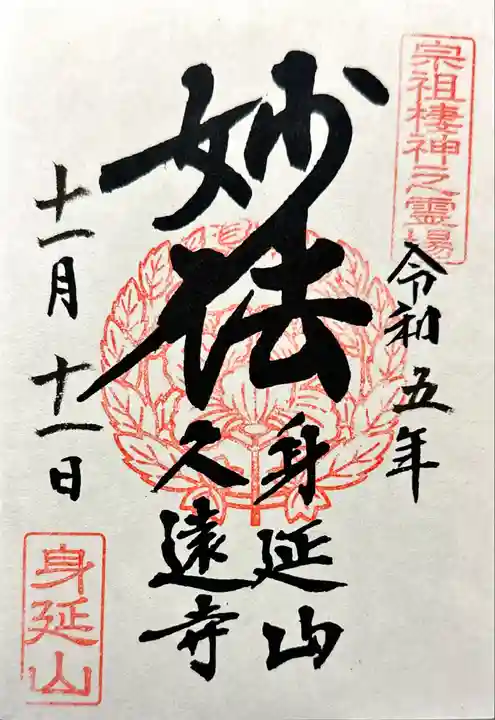 宗祖棲神之霊場
令和五年
妙法
身延山
久遠寺
十一月十一日
身延山